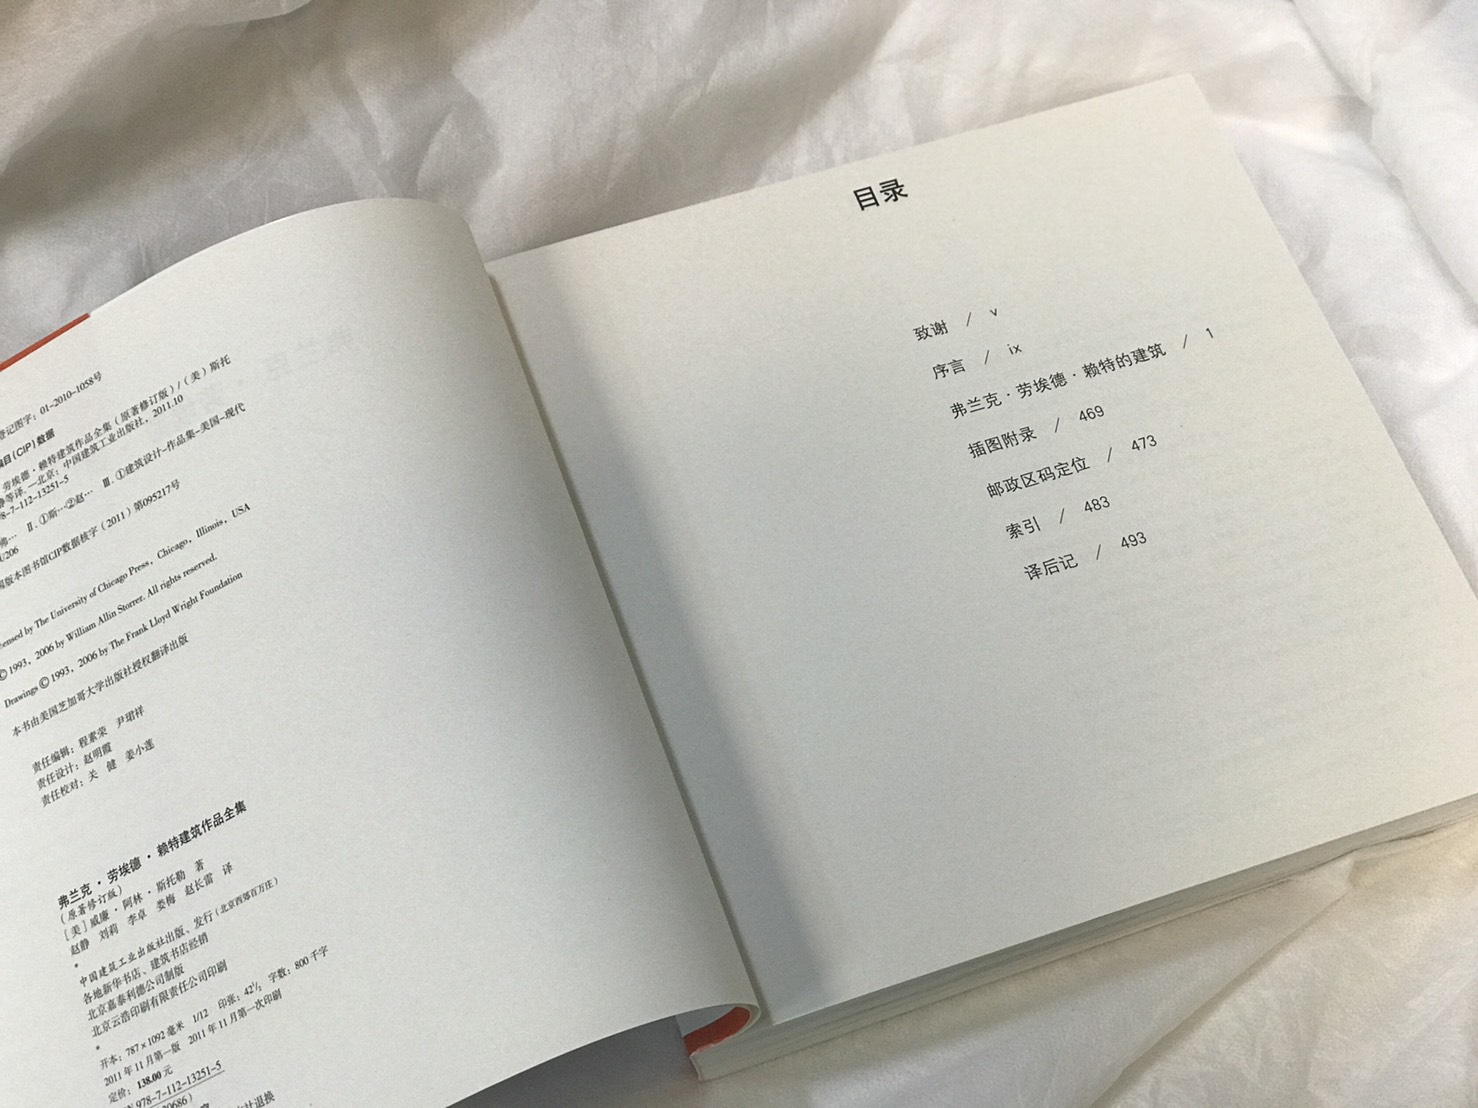 登记图字：01-2010-1058号
编目(CIP)数据
劳埃德·赖特建筑作品全集（原著修订版）/（美）斯托
静等译. —北京：中国建筑工业出版社，2011.10
78-7-112-13251-5
Ⅱ.①斯…②赵… Ⅲ.①建筑设计-作品集-美国-现代
206
国版本图书馆CIP数据核字（2011）第095217号
censed by The University of Chicago Press, Chicago, Illinois, USA
© 1993, 2006 by William Allin Storrer. All rights reserved.
Drawings © 1993, 2006 by The Frank Lloyd Wright Foundation
本书由美国芝加哥大学出版社授权翻译出版
责任编辑：程素荣 尹珺祥
责任设计：赵明霞
责任校对：关 健 姜小莲
弗兰克·劳埃德·赖特建筑作品全集
（原著修订版）
[美] 威廉·阿林·斯托勒 著
赵静 刘莉 李卓 娄梅 赵长雷 译
*
中国建筑工业出版社出版、发行（北京西郊百万庄）
各地新华书店、建筑书店经销
北京嘉泰利德公司制版
北京云浩印刷有限责任公司印刷
*
开本：787×1092毫米 1/12 印张：42½ 字数：800千字
2011年11月第一版 2011年11月第一次印刷
定价：138.00元
978-7-112-13251-5
20686)
社退换
目录
致谢 / v
序言 / ix
弗兰克·劳埃德·赖特的建筑 / 1
插图附录 / 469
邮政区码定位 / 473
索引 / 483
译后记 / 493